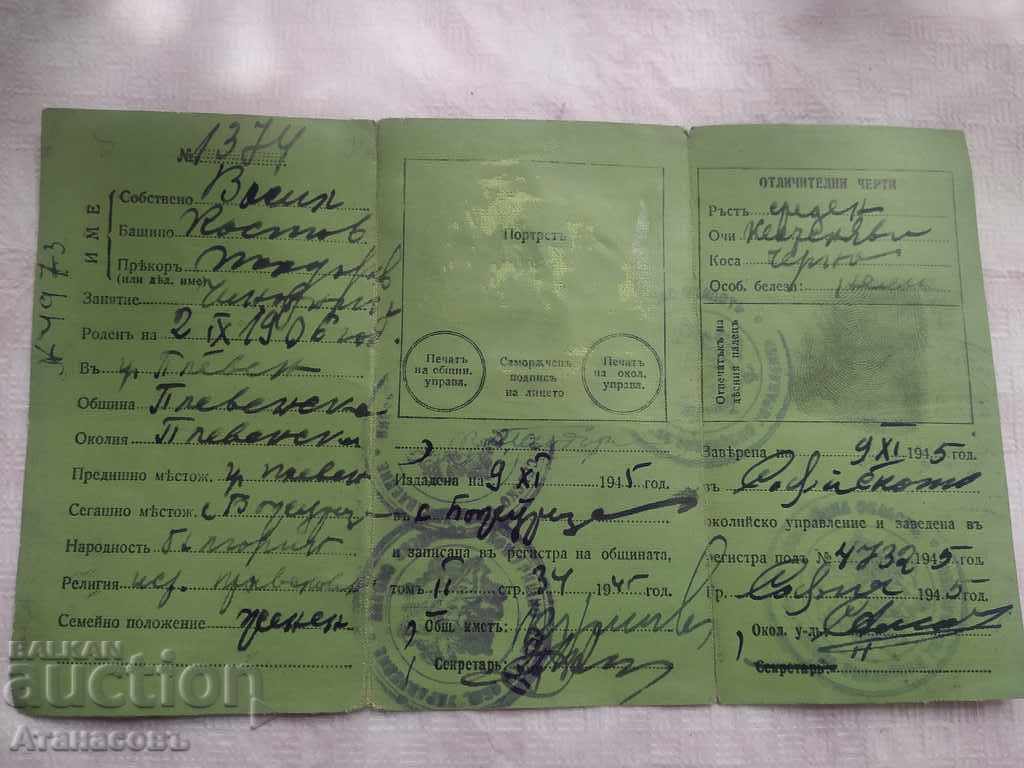 № 1374
ИМЕ
Собствено Васил
Башино Костов
Прѣкоръ Тодоров
(или дѣл. име)
Занятие
Роденъ на 2 IX 1906 год.
Въ гр. Плевен
Община Плевенска
Околия Плевенска
Предишно мѣстож. гр. Плевен
Сегашно мѣстож. с.
Народность българин
Религия изт. православ
Семейно положение женен
Портретъ
Печатъ
на общин.
управа.
Саморѫченъ
подписъ
на лицето
Печатъ
на окол.
управа.
Издадена на 9 XI 1945 год.
въ с.
и записана въ регистра на общината,
томъ II стр. 34 1945 год.
Общ. кметъ:
Секретарь:
ОТЛИЧИТЕЛНИ ЧЕРТИ
Ръстъ среден
Очи
Коса черна
Особ. белези:
Отпечатъкъ на
дѣсния палецъ
Завѣрена на 9 XI 1945 год.
въ Софийското
околийско управление и заведена въ
регистра подъ № 4732 1945 год.
Гр. София 1945 год.
Окол. у-лъ:
Секретарь:
BALKAN
auction
Атанасовъ